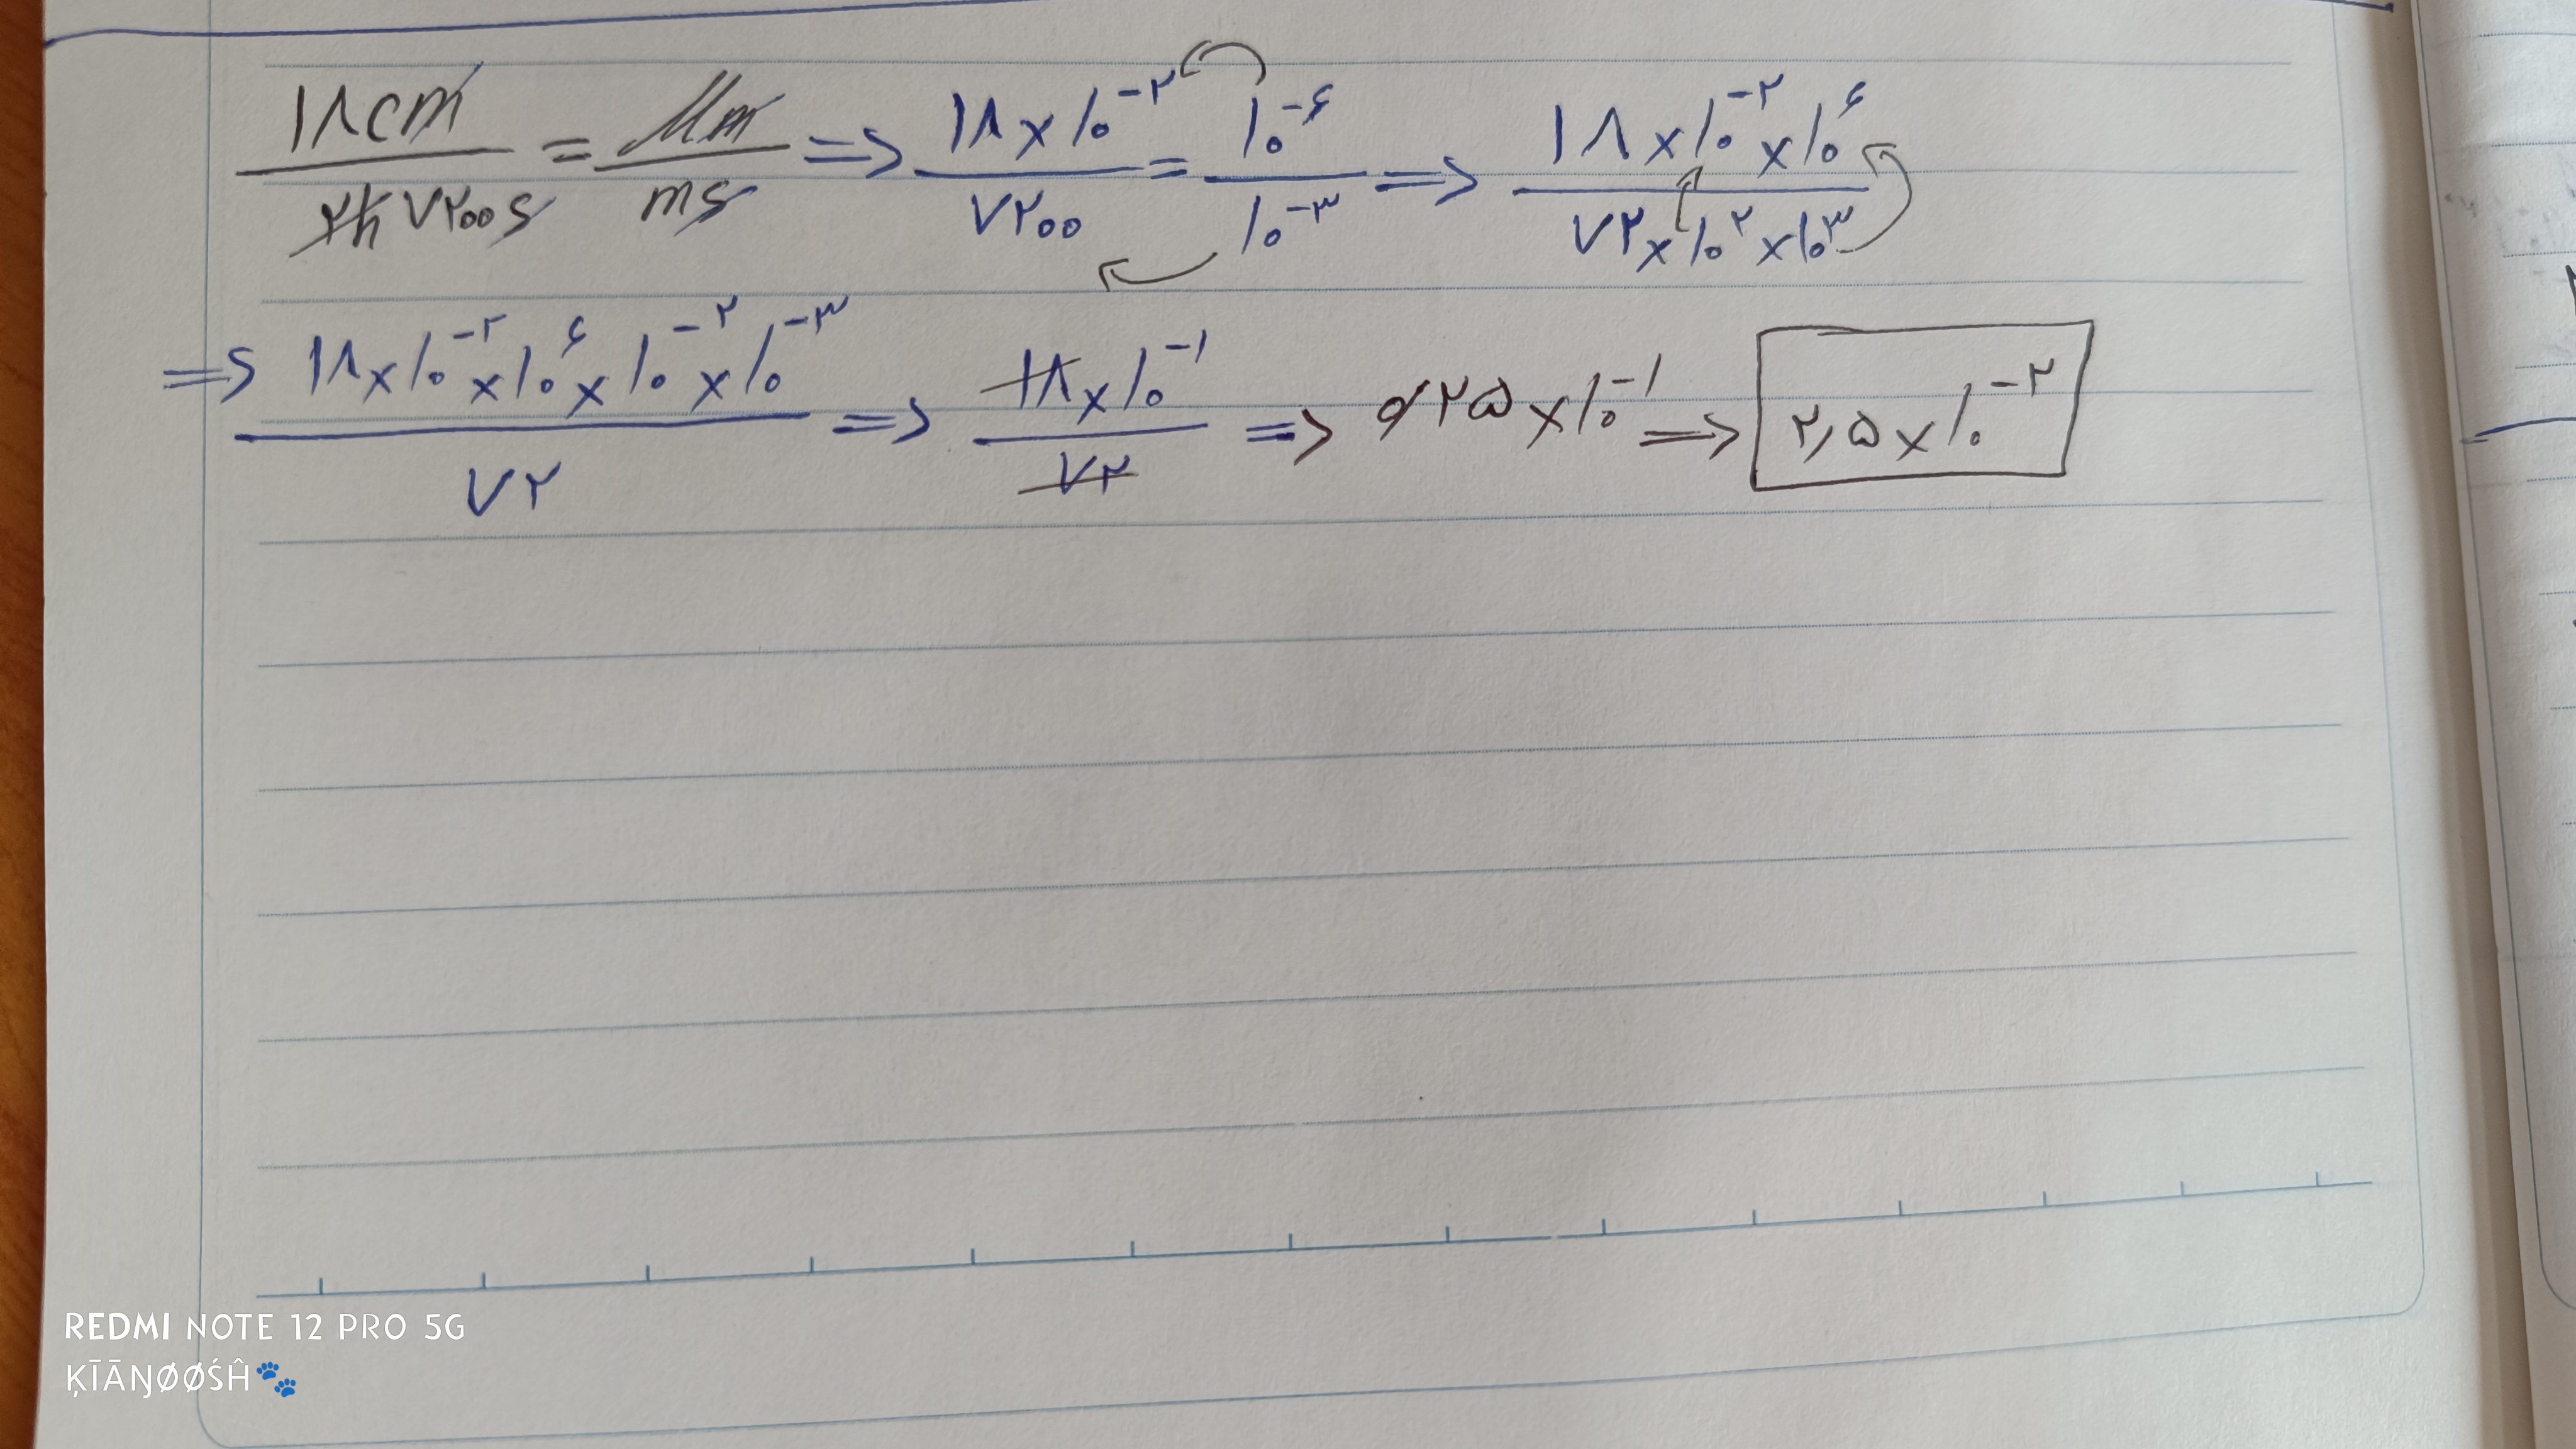 ۱۸cm / ۲h ۷۲۰۰s = μm / ms => ۱۸×۱۰^-۲ / ۷۲۰۰ = ۱۰^-۶ / ۱۰^-۳ => ۱۸×۱۰^-۲×۱۰^۶ / ۷۲×۱۰^۲×۱۰^۳
=> ۱۸×۱۰^-۲×۱۰^۶×۱۰^-۲×۱۰^-۳ / ۷۲ => ۱۸×۱۰^-۱ / ۷۲ => ۰٫۲۵×۱۰^-۱ => ۲٫۵×۱۰^-۲
REDMI NOTE 12 PRO 5G
ĶĪĀŊØØŚĤ🐾